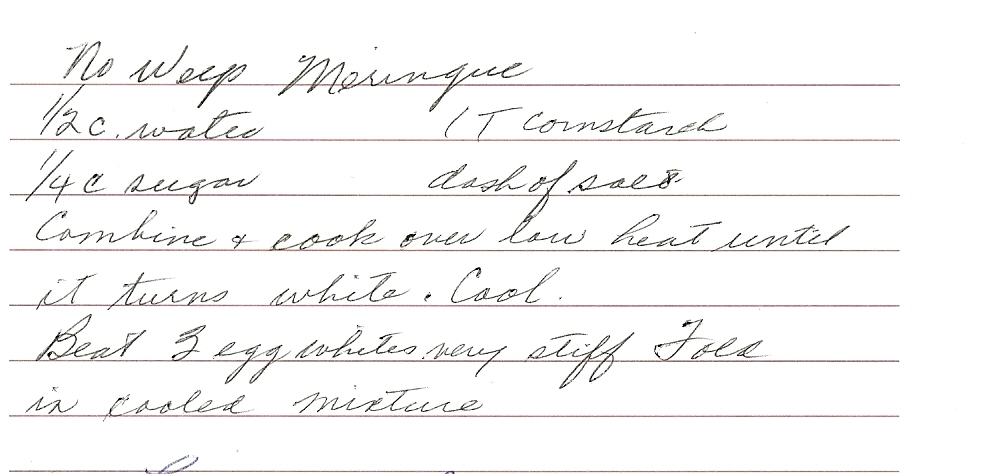 No Weep Meringue
1/2 c. water 1 T cornstarch
1/4 c sugar dash of salt
Combine + cook over low heat until
it turns white. Cool.
Beat 3 egg whites very stiff Fold
in cooled mixture